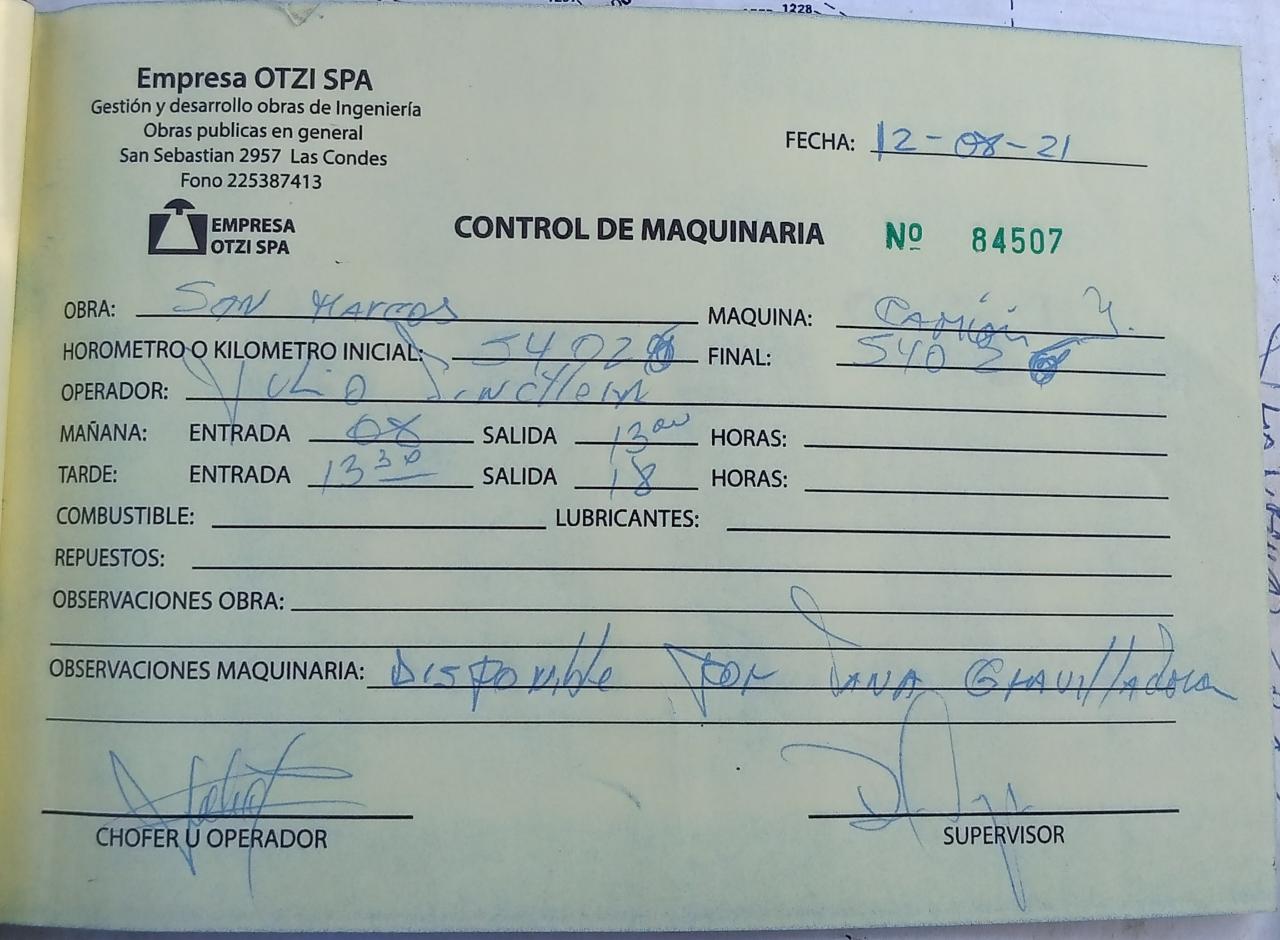 1228
Empresa OTZI SPA
Gestión y desarrollo obras de Ingeniería
Obras publicas en general
San Sebastian 2957 Las Condes
Fono 225387413
FECHA: 12-08-21
EMPRESA
OTZI SPA
CONTROL DE MAQUINARIA Nº 84507
OBRA: San Marcos MAQUINA: Camión
HOROMETRO O KILOMETRO INICIAL: 54028 FINAL: 54028
OPERADOR: Julio
MAÑANA: ENTRADA 08 SALIDA 13 00 HORAS:
TARDE: ENTRADA 13 30 SALIDA 18 HORAS:
COMBUSTIBLE: LUBRICANTES:
REPUESTOS:
OBSERVACIONES OBRA:
OBSERVACIONES MAQUINARIA: Disponible por Pana Gravilladora
CHOFER U OPERADOR SUPERVISOR